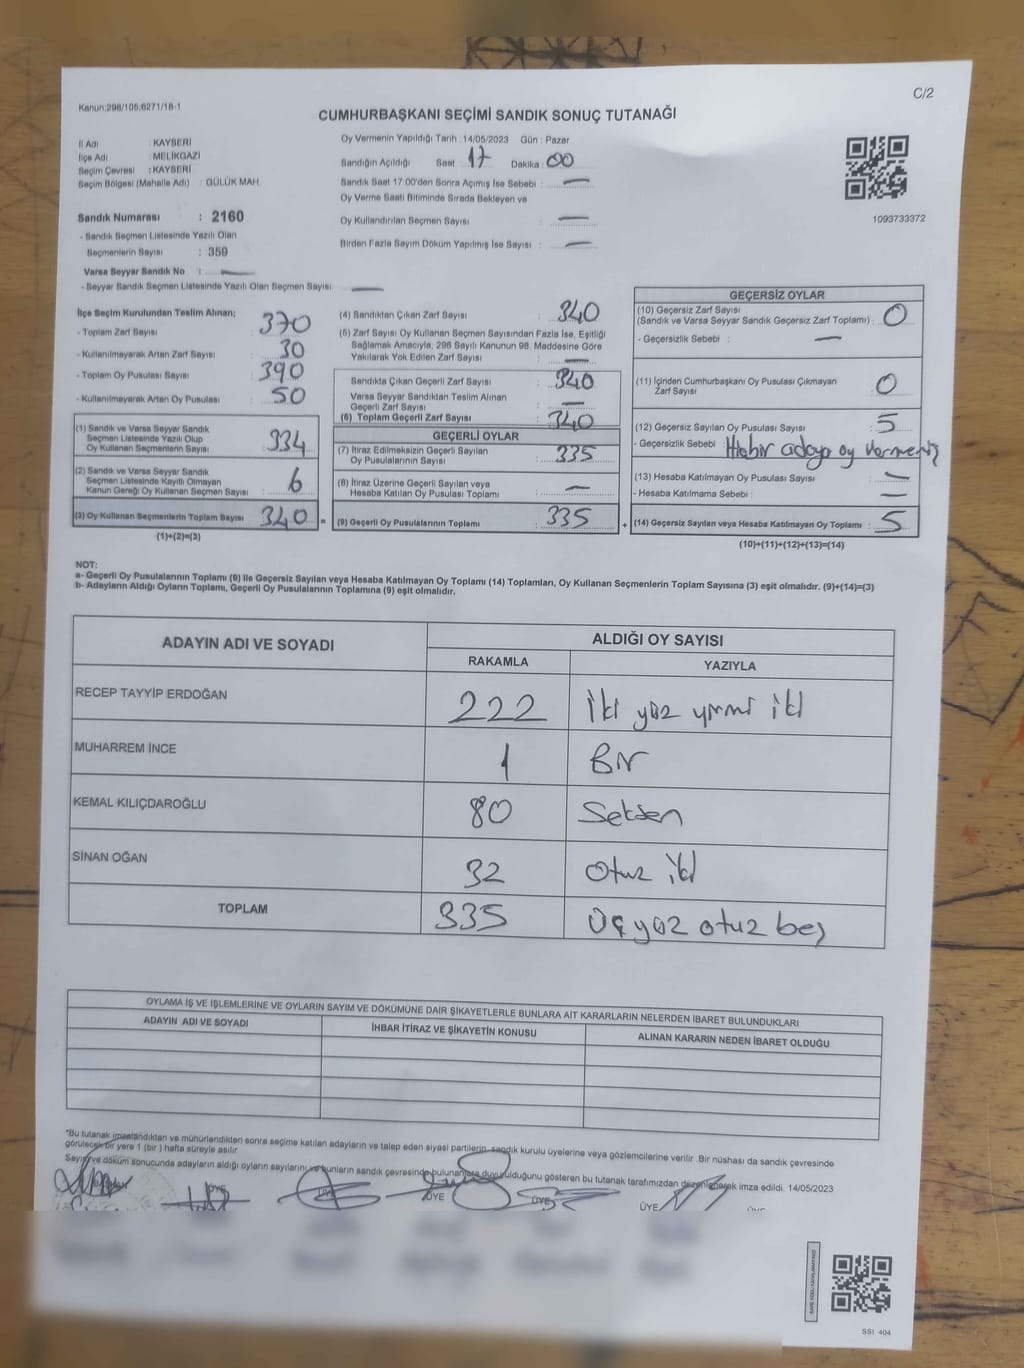 Kanun:298/105;6271/18-1
C/2
CUMHURBAŞKANI SEÇİMİ SANDIK SONUÇ TUTANAĞI
İl Adı : KAYSERİ
İlçe Adı : MELİKGAZİ
Seçim Çevresi : KAYSERİ
Seçim Bölgesi (Mahalle Adı) : GÜLÜK MAH.
Sandık Numarası : 2160
- Sandık Seçmen Listesinde Yazılı Olan
Seçmenlerin Sayısı : 359
Varsa Seyyar Sandık No : —
- Seyyar Sandık Seçmen Listesinde Yazılı Olan Seçmen Sayısı : —
Oy Vermenin Yapıldığı Tarih : 14/05/2023 Gün : Pazar
Sandığın Açıldığı Saat 17 Dakika : 00
Sandık Saat 17:00'den Sonra Açılmış İse Sebebi : —
Oy Verme Saati Bitiminde Sırada Bekleyen ve
Oy Kullandırılan Seçmen Sayısı : —
Birden Fazla Sayım Döküm Yapılmış İse Sayısı : —
1093733372
İlçe Seçim Kurulundan Teslim Alınan;
- Toplam Zarf Sayısı : 370
- Kullanılmayarak Artan Zarf Sayısı : 30
- Toplam Oy Pusulası Sayısı : 390
- Kullanılmayarak Artan Oy Pusulası : 50
(1) Sandık ve Varsa Seyyar Sandık
Seçmen Listesinde Yazılı Olup
Oy Kullanan Seçmenlerin Sayısı : 334
(2) Sandık ve Varsa Seyyar Sandık
Seçmen Listesinde Kayıtlı Olmayan
Kanun Gereği Oy Kullanan Seçmen Sayısı : 6
(3) Oy Kullanan Seçmenlerin Toplam Sayısı : 340 =
(1)+(2)=(3)
(4) Sandıktan Çıkan Zarf Sayısı : 340
(5) Zarf Sayısı Oy Kullanan Seçmen Sayısından Fazla İse, Eşitliği
Sağlamak Amacıyla, 298 Sayılı Kanunun 98. Maddesine Göre
Yakılarak Yok Edilen Zarf Sayısı : —
Sandıkta Çıkan Geçerli Zarf Sayısı : 340
Varsa Seyyar Sandıktan Teslim Alınan
Geçerli Zarf Sayısı : —
(6) Toplam Geçerli Zarf Sayısı : 340
GEÇERLİ OYLAR
(7) İtiraz Edilmeksizin Geçerli Sayılan
Oy Pusulalarının Sayısı : 335
(8) İtiraz Üzerine Geçerli Sayılan veya
Hesaba Katılan Oy Pusulası Toplamı : —
(9) Geçerli Oy Pusulalarının Toplamı : 335 +
GEÇERSİZ OYLAR
(10) Geçersiz Zarf Sayısı
(Sandık ve Varsa Seyyar Sandık Geçersiz Zarf Toplamı) : 0
- Geçersizlik Sebebi : —
(11) İçinden Cumhurbaşkanı Oy Pusulası Çıkmayan
Zarf Sayısı : 0
(12) Geçersiz Sayılan Oy Pusulası Sayısı : 5
- Geçersizlik Sebebi : Hiçbir adaya oy vermemiş
(13) Hesaba Katılmayan Oy Pusulası Sayısı : —
- Hesaba Katılmama Sebebi : —
(14) Geçersiz Sayılan veya Hesaba Katılmayan Oy Toplamı : 5
(10)+(11)+(12)+(13)=(14)
NOT:
a- Geçerli Oy Pusulalarının Toplamı (9) ile Geçersiz Sayılan veya Hesaba Katılmayan Oy Toplamı (14) Toplamları, Oy Kullanan Seçmenlerin Toplam Sayısına (3) eşit olmalıdır. (9)+(14)=(3)
b- Adayların Aldığı Oyların Toplamı, Geçerli Oy Pusulalarının Toplamına (9) eşit olmalıdır.
ADAYIN ADI VE SOYADI ALDIĞI OY SAYISI
RAKAMLA YAZIYLA
RECEP TAYYİP ERDOĞAN 222 İki yüz yirmi iki
MUHARREM İNCE 1 Bir
KEMAL KILIÇDAROĞLU 80 Seksen
SİNAN OĞAN 32 Otuz iki
TOPLAM 335 Üç yüz otuz beş
OYLAMA İŞ VE İŞLEMLERİNE VE OYLARIN SAYIM VE DÖKÜMÜNE DAİR ŞİKAYETLERLE BUNLARA AİT KARARLARIN NELERDEN İBARET BULUNDUKLARI
ADAYIN ADI VE SOYADI İHBAR İTİRAZ VE ŞİKAYETİN KONUSU ALINAN KARARIN NEDEN İBARET OLDUĞU
*Bu tutanak imzalandıktan ve mühürlendikten sonra seçime katılan adayların ve talep eden siyasi partilerin, sandık kurulu üyelerine veya gözlemcilerine verilir. Bir nüshası da sandık çevresinde
görülecek bir yere 1 (bir) hafta süreyle asılır.
Sayım ve döküm sonucunda adayların aldığı oyların sayılarını ve bunların sandık çevresinde bulunanlara duyurulduğunu gösteren bu tutanak tarafımızdan düzenlenerek imza edildi. 14/05/2023
ÜYE ÜYE ÜYE ÜYE ÜYE
SSI 404